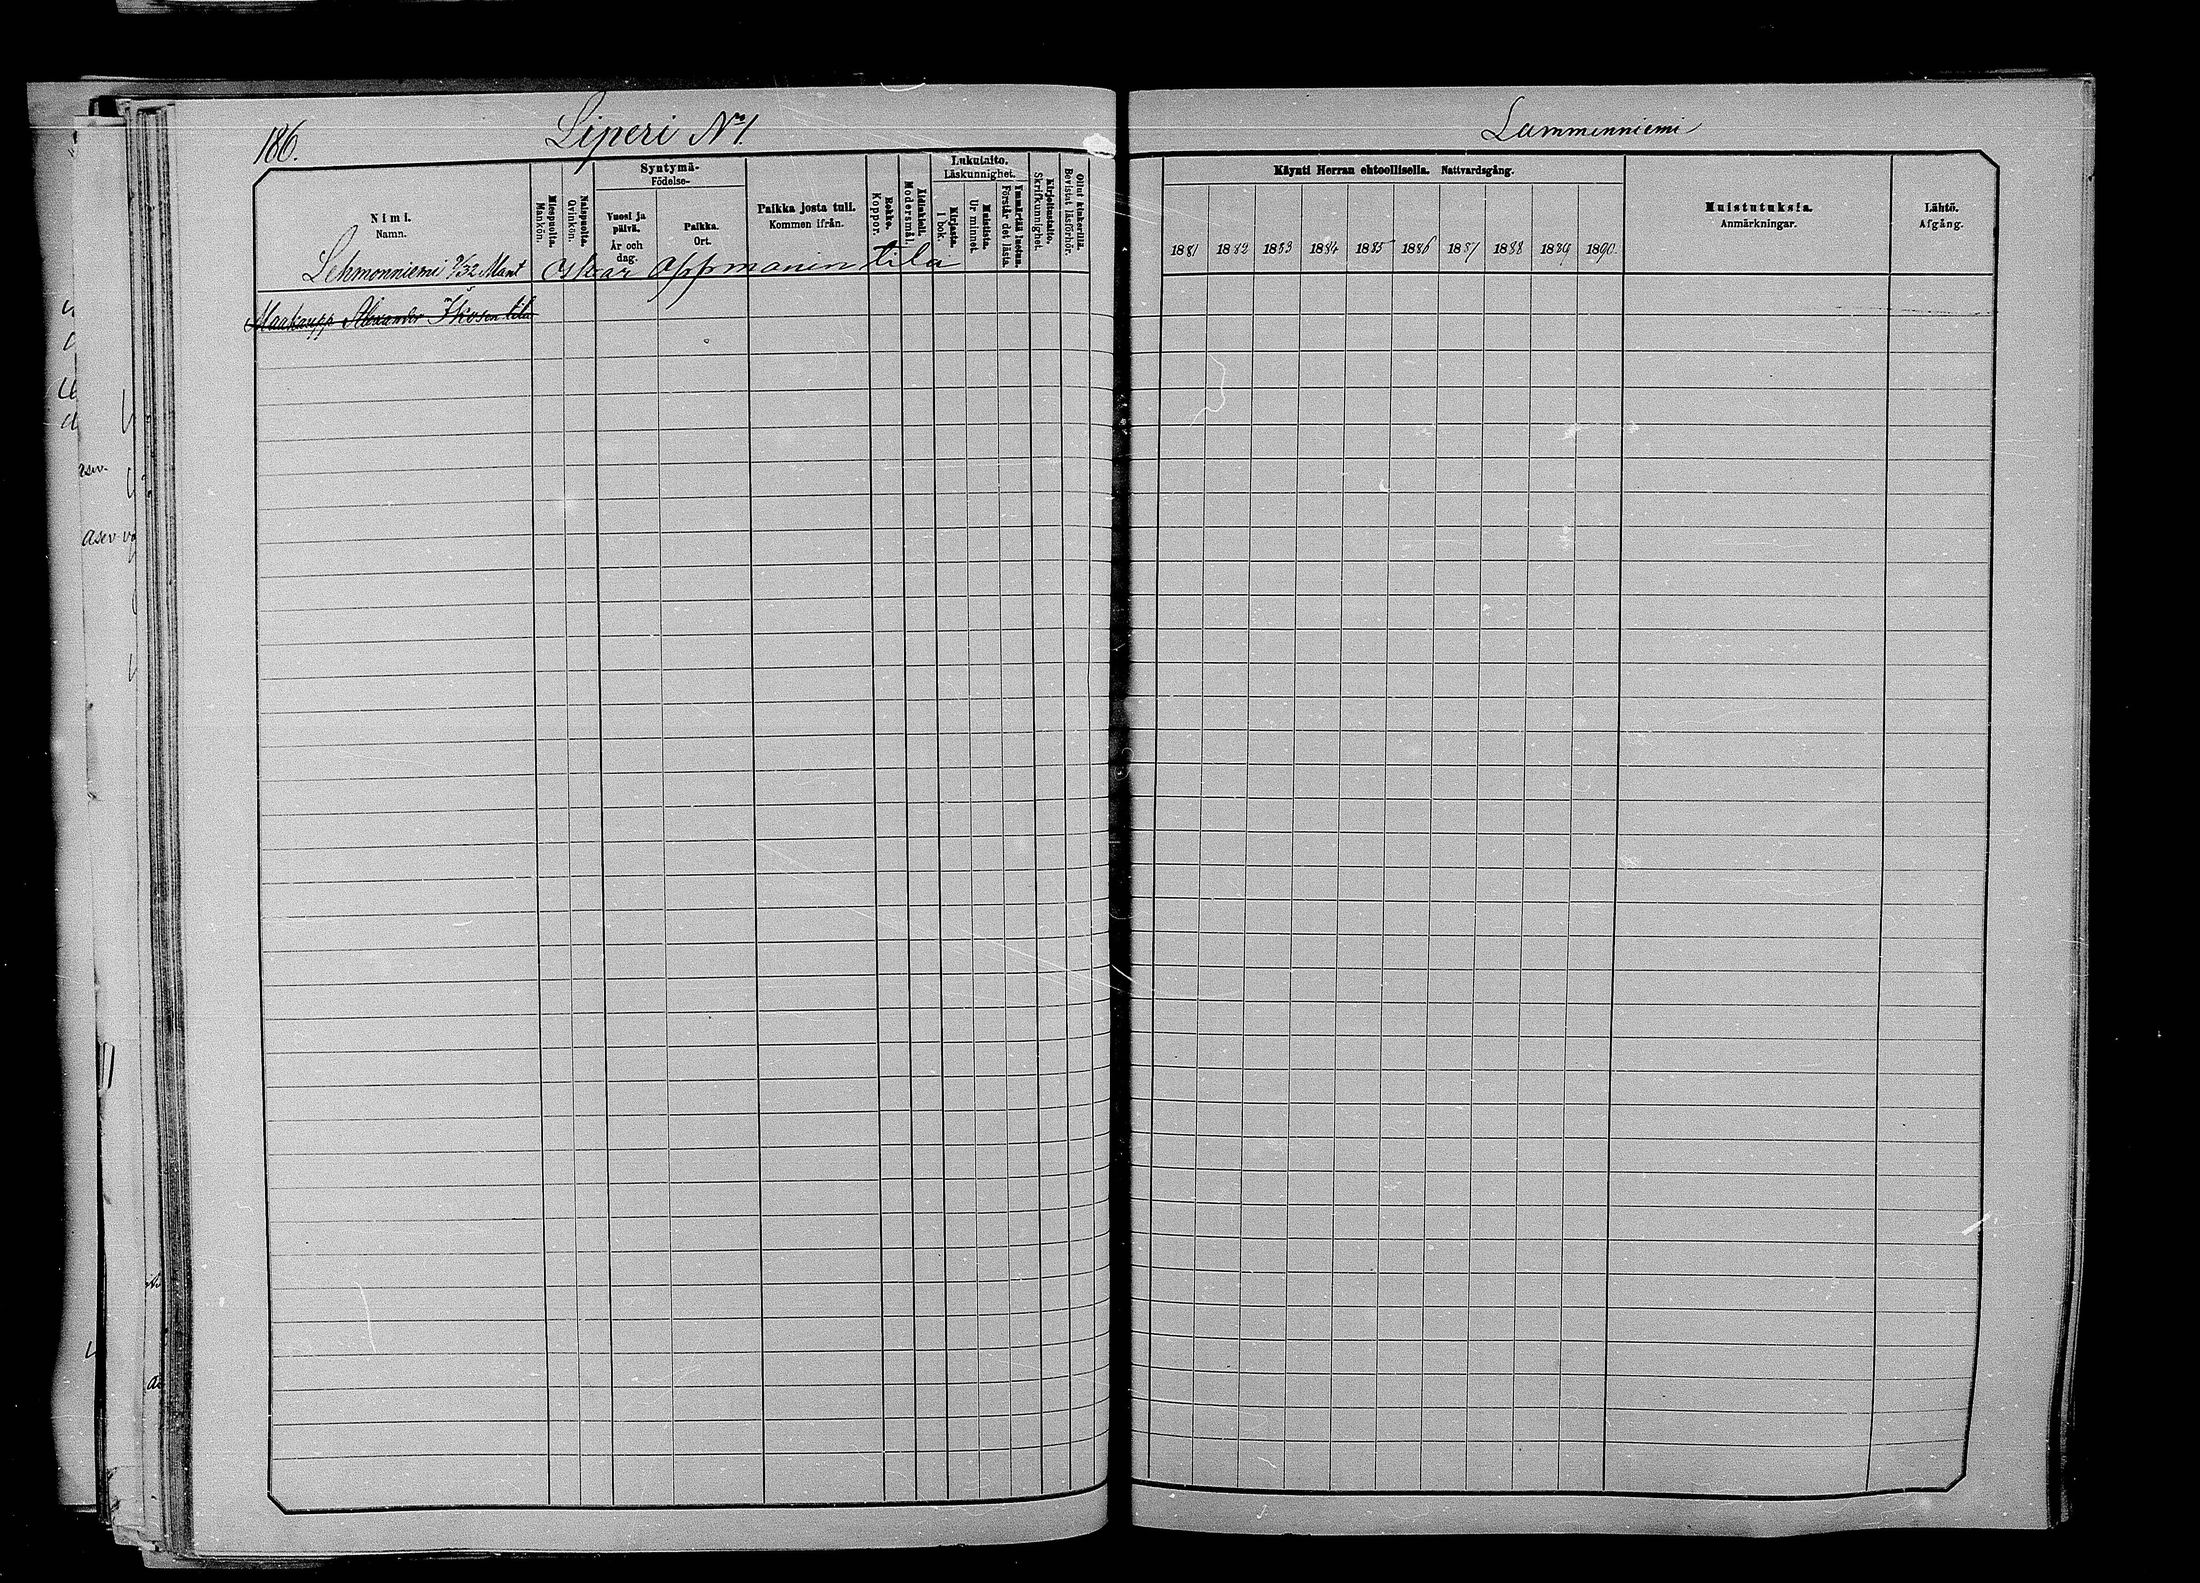 186.
Liperi No 1.
Lammenniemi
Nimi.
Namn.
Miespuolta.
Mankön.
Naispuolta.
Qvinkön.
Syntymä-
Födelse-
Vuosi ja päivä.
År och dag.
Paikka.
Ort.
Paikka josta tuli.
Kommen ifrån.
Rokko.
Koppor.
Äidinkieli.
Modersmål.
Lukutaito.
Läskunnighet.
Kirjasta.
I bok.
Muistista.
Ur minnet.
Ymmärtää luetun.
Förstår det lästa.
Kirjoitustaito.
Skrifkunnighet.
Ollut kinkerillä.
Bevistat läsförhör.
Käynti Herran ehtoollisella. Nattvardsgång.
1881 1882 1883 1884 1885 1886 1887 1888 1889 1890
Muistutuksia.
Anmärkningar.
Lähtö.
Afgång.
Lehmonniemi Oskar Oppmanin tila
Maakaupp Alexander Ikosen tila
asw-